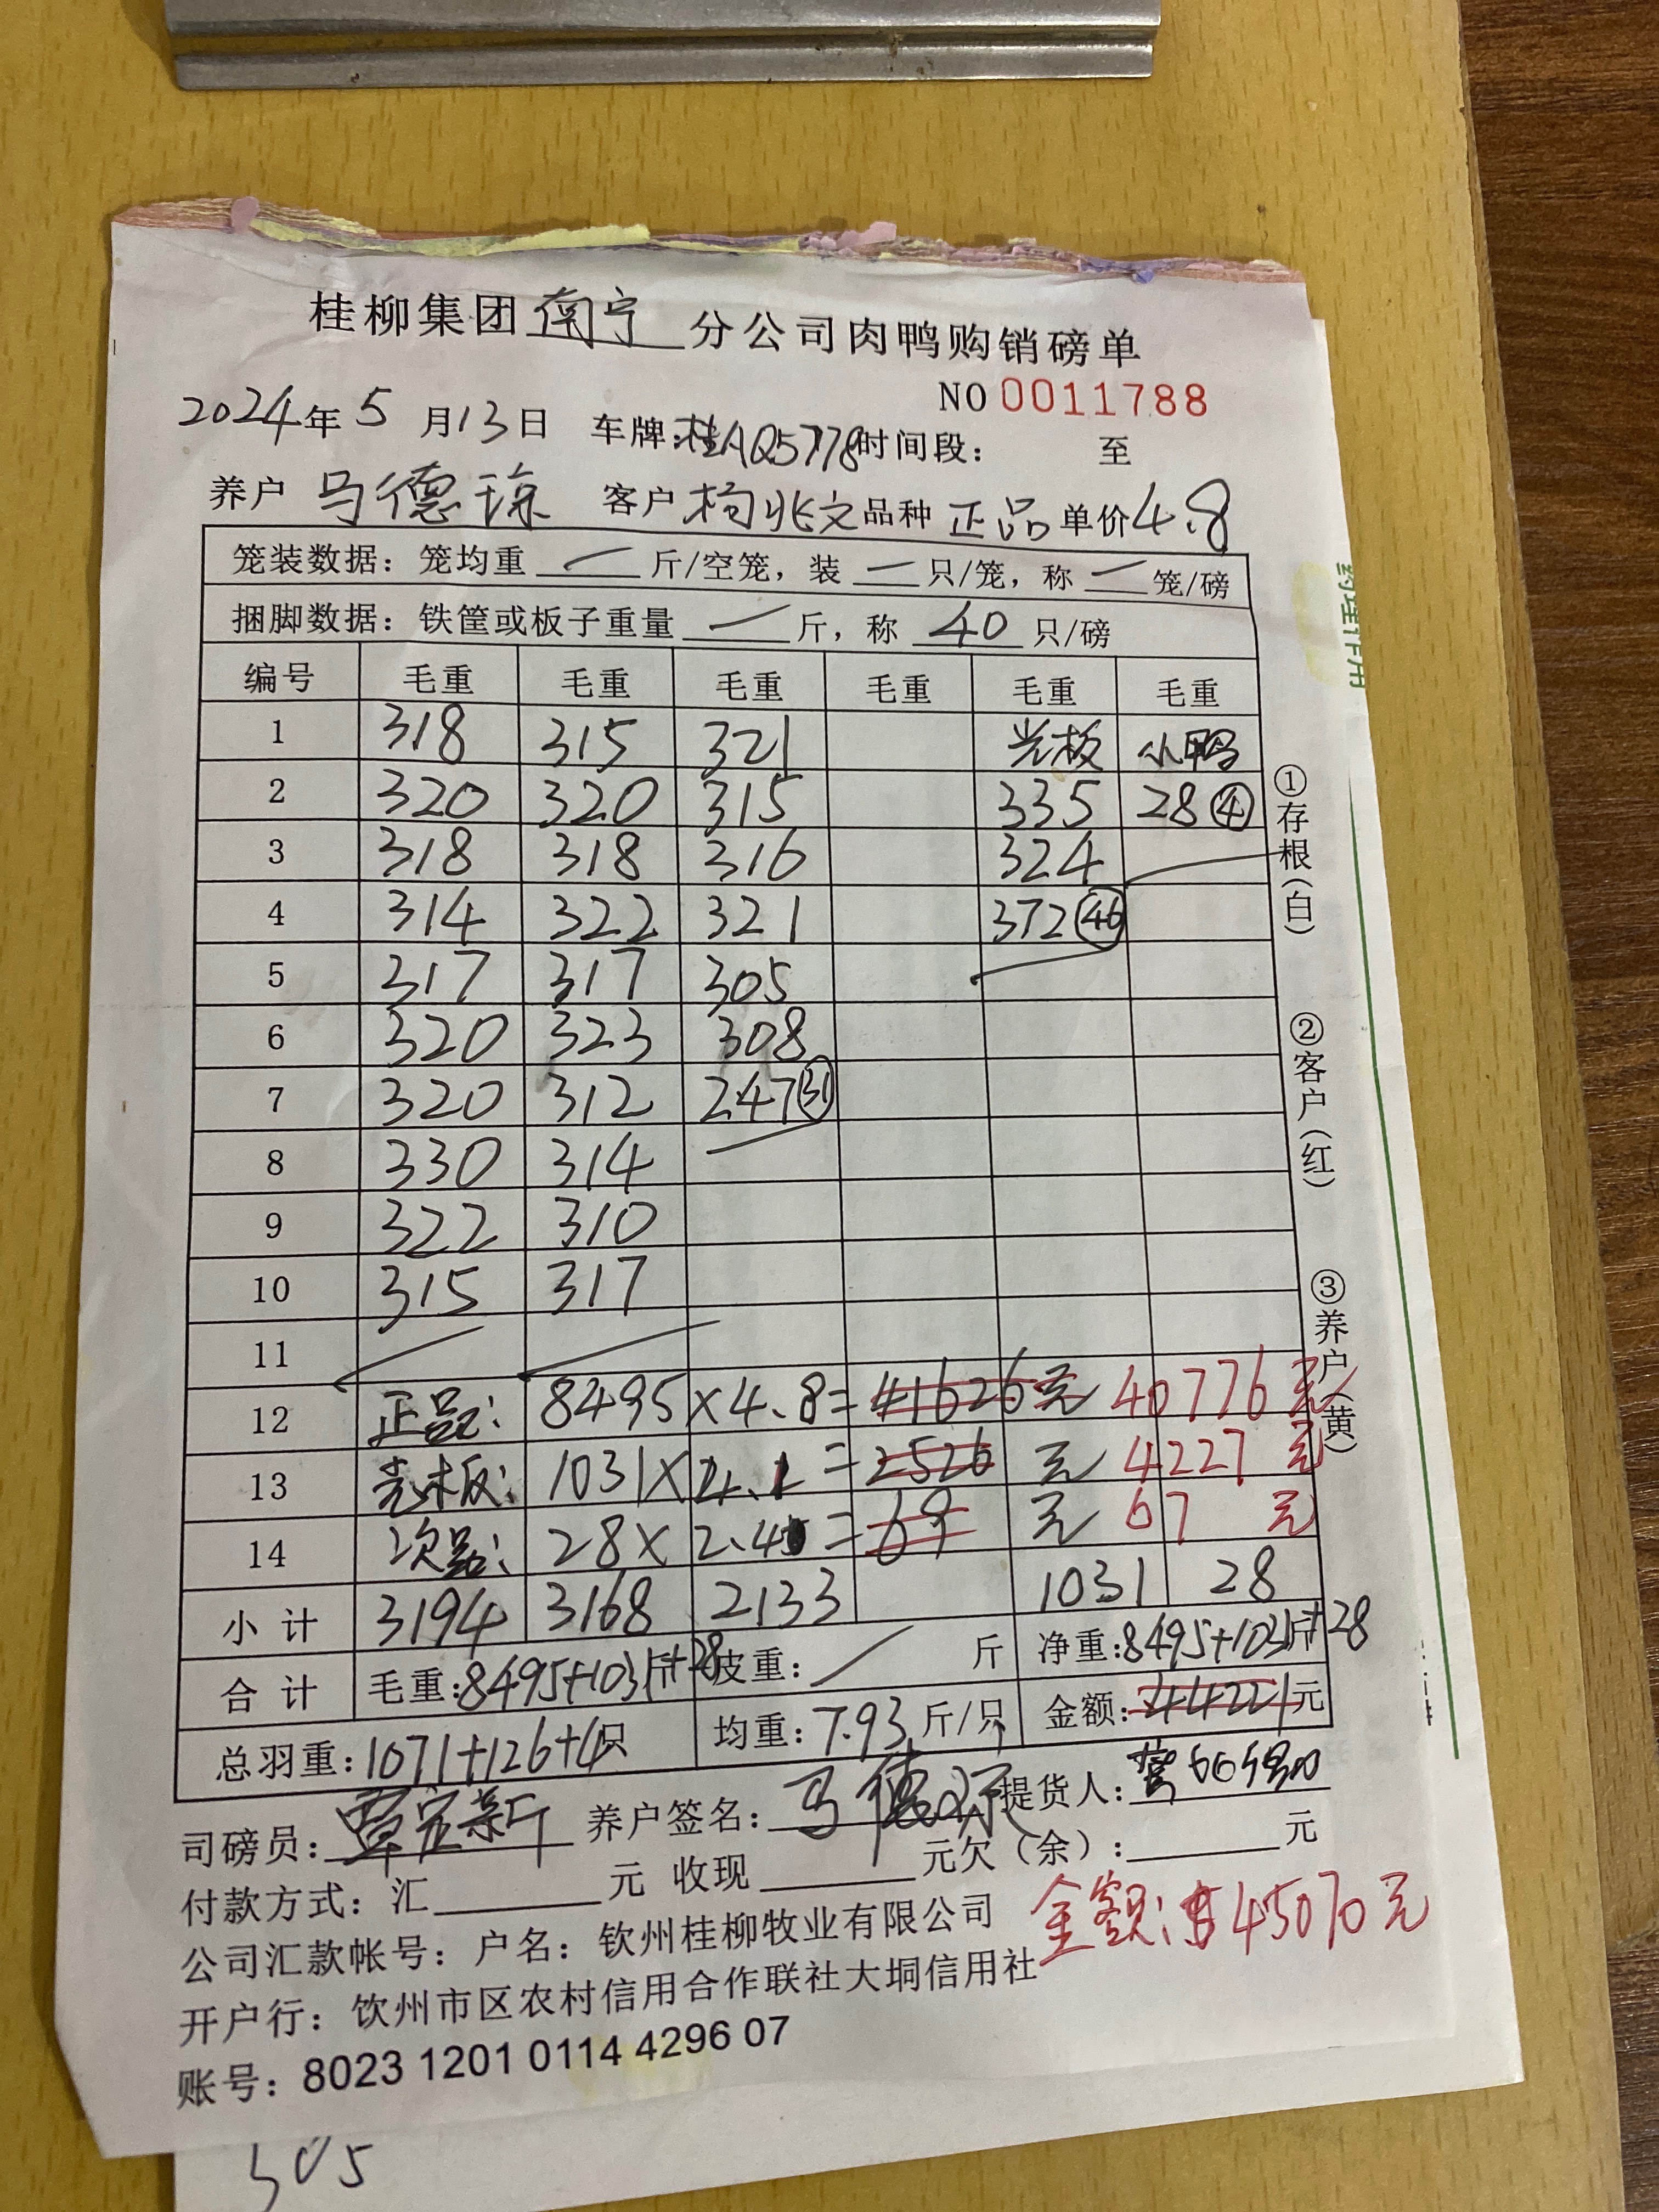 桂柳集团南宁分公司肉鸭购销磅单
NO 0011788
2024年5月13日 车牌:桂AQ5778时间段: 至
养户 马德琼 客户 杨兆文 品种 正品 单价4.8
笼装数据: 笼均重 一 斤/空笼, 装 一 只/笼, 称 一 笼/磅
捆脚数据: 铁筐或板子重量 一 斤, 称 40 只/磅
编号 毛重 毛重 毛重 毛重 毛重 毛重
1 318 315 321 光板 小鸭
2 320 320 315 335 28 ④
3 318 318 316 324
4 314 322 321 372 46
5 317 317 305
6 320 323 308
7 320 312 247 31
8 330 314
9 322 310
10 315 317
11
12 正品: 8495×4.8= 41626元 40776元
13 光板: 1031× 4.1 =2526 元 4227 元
14 次品: 28× 2.4 =69 元 67 元
小计 3194 3168 2133 1031 28
合计 毛重:8495+1031斤+28 皮重: 斤 净重:8495+1031斤+28
总羽重:1071+126+4只 均重:7.93斤/只 金额:44221元
司磅员: 覃宏新 养户签名: 马德琼 提货人:
付款方式: 汇 元 收现 元欠(余): 元
金额: 45070元
公司汇款帐号: 户名: 钦州桂柳牧业有限公司
开户行: 钦州市区农村信用合作联社大垌信用社
账号: 8023 1201 0114 4296 07
①存根(白)
②客户(红)
③养户(黄)
305